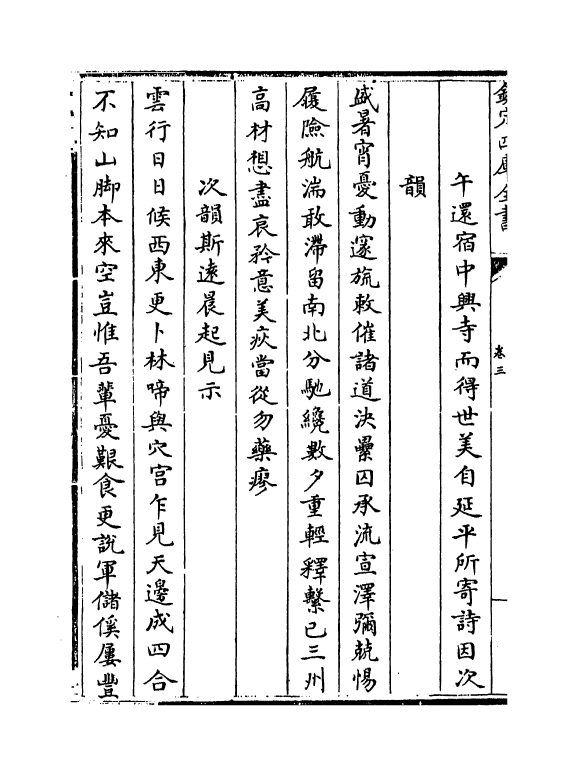 欽定四庫全書
卷三
午還宿中興寺而得世美自延平所寄詩因次
韻
盛暑宵憂動邃旒敕催諸道決纍囚承流宣澤彌兢惕
履險航湍敢滯留南北分馳纔數夕重輕釋繫已三州
高材想盡哀矜意美疢當從勿藥瘳
次韻斯遠晨起見示
雲行日日候西東更卜林啼與穴宫乍見天邊成四合
不知山脚本來空豈惟吾輩憂艱食更說軍儲傒屢豐